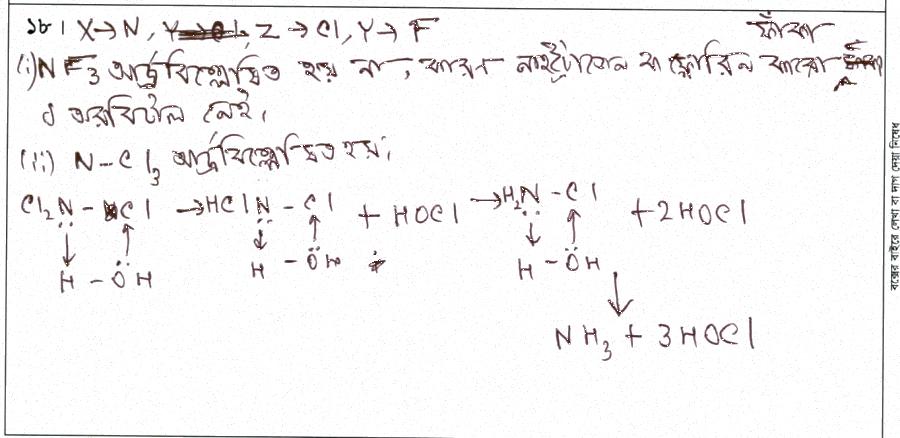 ১৮। X→N, Z→Cl, Y→F
(i) NF3 আর্দ্রবিশ্লেষিত হয় না, কারণ নাইট্রোজেন বা ফ্লোরিন কারো ফাঁকা
d অরবিটাল নেই।
(ii) N-Cl3 আর্দ্রবিশ্লেষিত হয়।
Cl2N̤ - Cl → HClN̤ - Cl + HOCl → H2N̤ - Cl + 2HOCl
↓ ↑ ↓ ↑ ↓ ↑
H - ÖH H - ÖH H - ÖH
↓
NH3 + 3HOCl
বক্সের বাইরে লেখা বা দাগ দেয়া নিষেধ